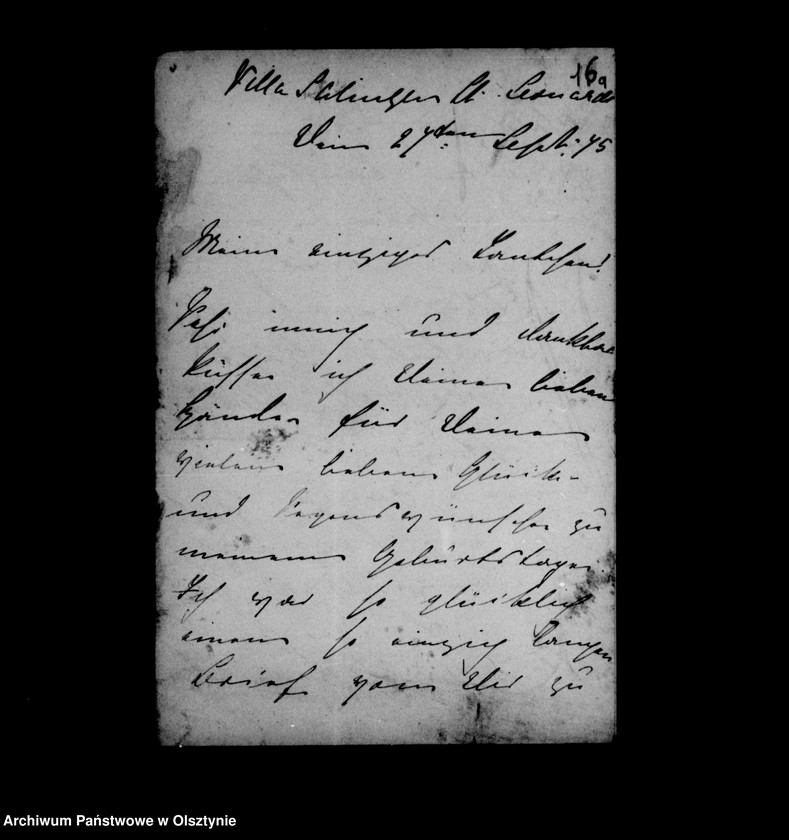 16a
Villa St. Leonards
Den 27ten Sept. 75
Mein einziges Tantchen!
Sehr innig und dankbar
küsse ich Deine lieben
Hände für Deine
vielen lieben Glück-
und Segenswünsche zu
meinem Geburtstage.
Ich war so glücklich
einen so einzig langen
Brief von Dir zu
Archiwum Państwowe w Olsztynie